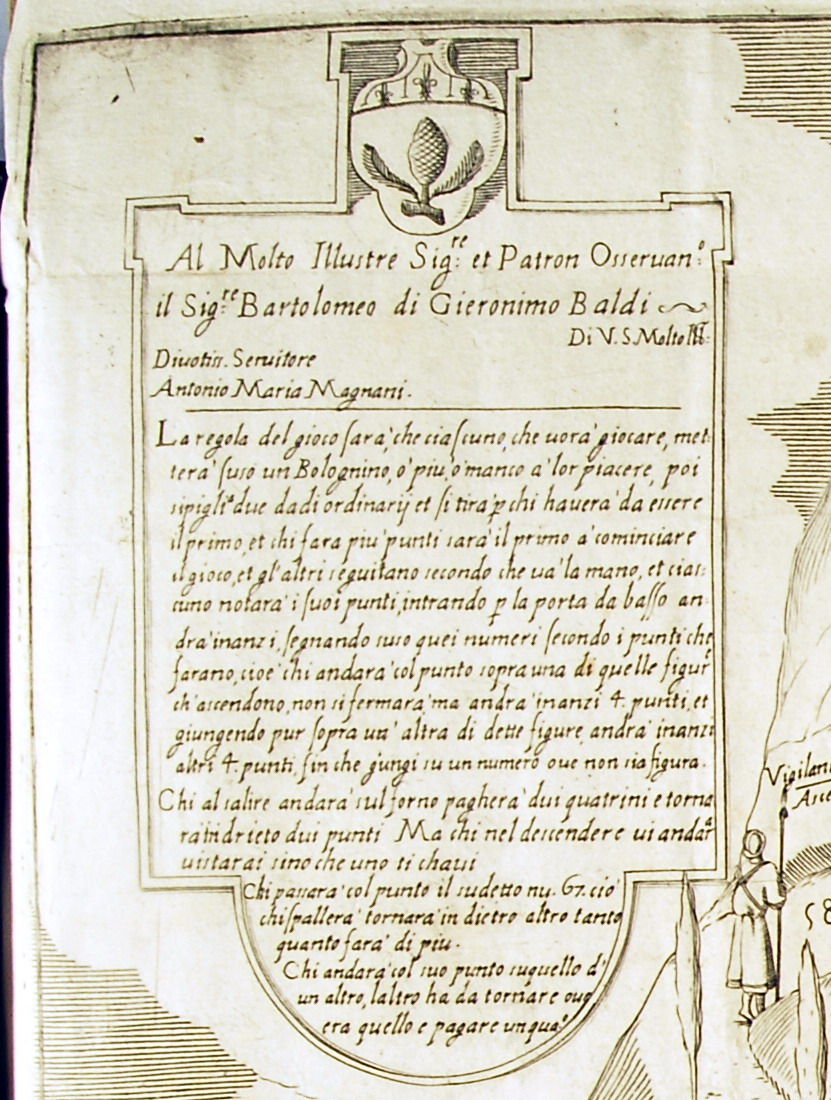 Al Molto Illustre Sig.re et Patron Osseruan.o
il Sig.re Bartolomeo di Gieronimo Baldi
Di V. S. Molto Ill:
Diuotiss. Seruitore
Antonio Maria Magnani.
La regola del gioco sarà, che ciascuno, che uorà giocare, met:
terà suso un Bolognino, ò più, ò manco à lor piacere, poi
si pigli due dadi ordinarij et si tira p chi hauerà da essere
il primo, et chi fara più punti sarà il primo à cominciare
il gioco, et gl'altri seguitano secondo che uà la mano, et cias:
cuno notarà i suoi punti, intrando p la porta da basso an
drà inanzi, segnando suso quei numeri secondo i punti che
farano, cioè chi andarà col punto sopra una di quelle figure
ch'ascendono, non si fermarà, ma andrà inanzi 4. punti, et
giungendo pur sopra un' altra di dette figure, andrà inanzi
altri 4. punti, fin che giungi su un numero oue non sia figura.
Chi al salire andarà sul forno pagherà dui quatrini e torna
rà indrieto dui punti Ma chi nel descendere ui andarà
ui starai sino che uno ti chaui
Chi passarà col punto il sudetto nu. 67. ciò
chi spallerà tornarà in dietro altro tanto
quanto farà di più.
Chi andarà col suo punto su quello d'
un altro, l'altro ha da tornare oue
era quello e pagare un qua.o
Vigilan
Asce
58